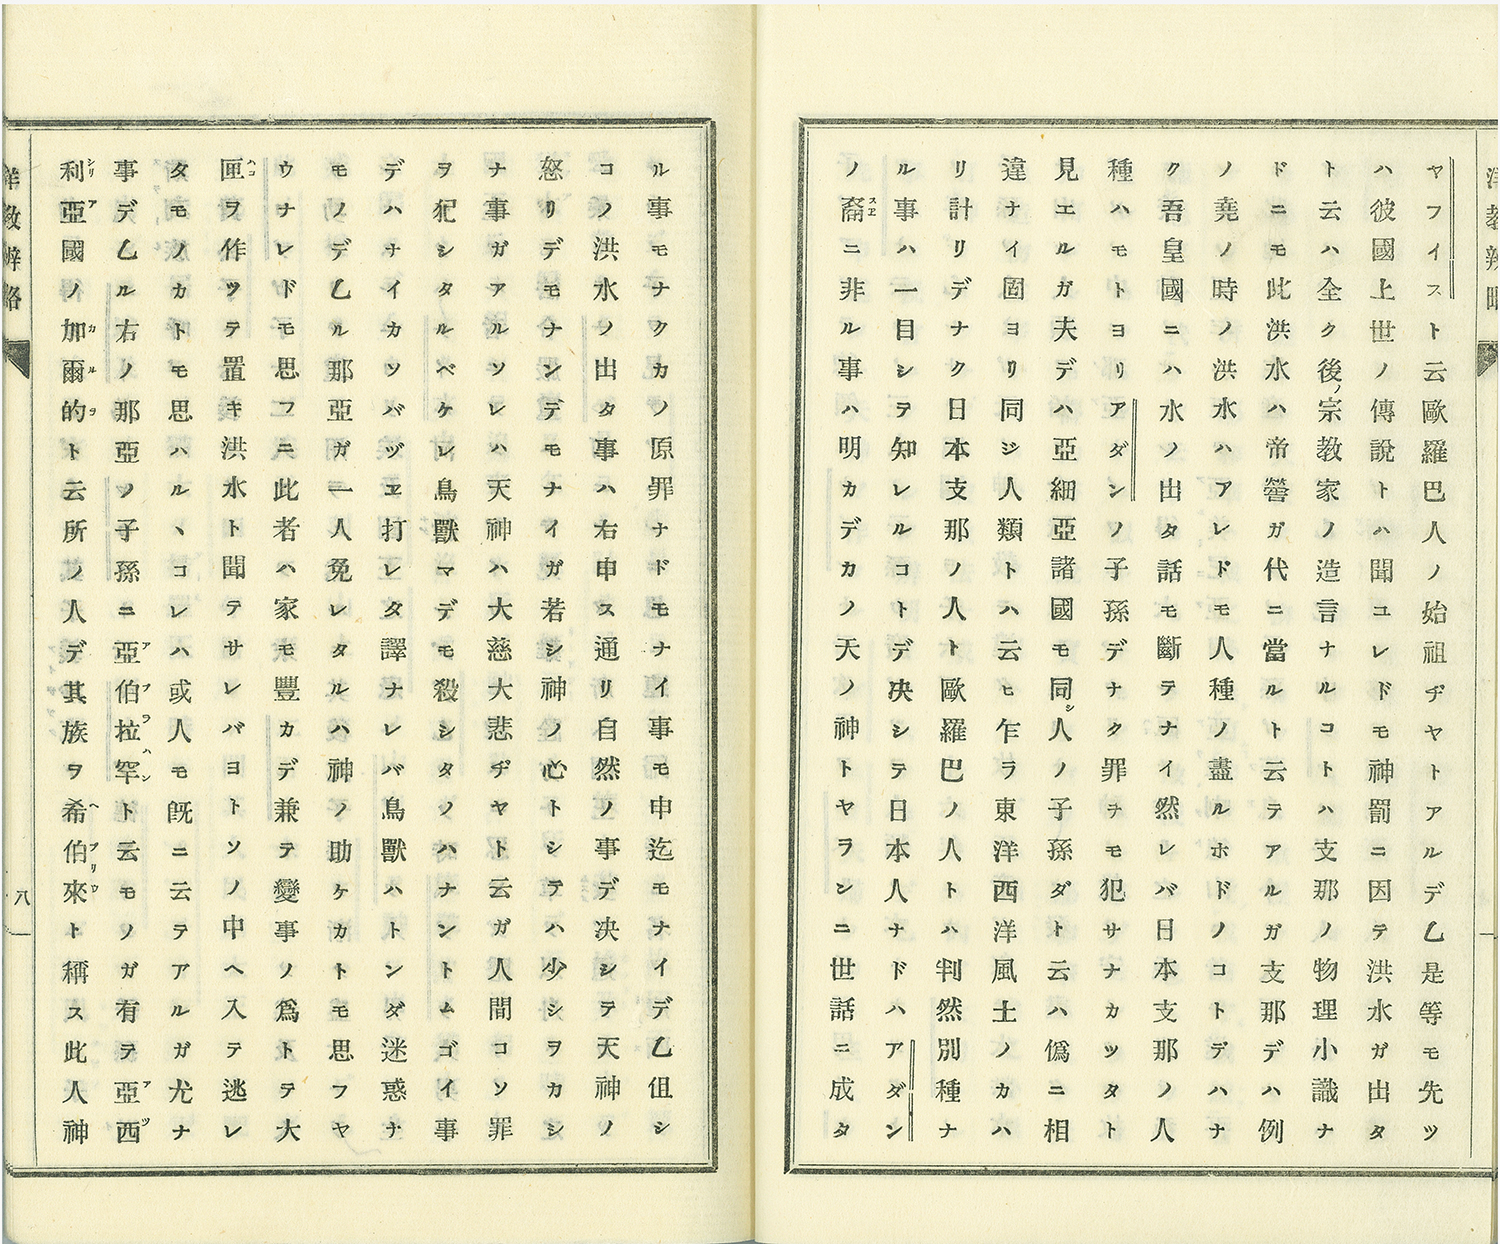 ヤフイスト云歐羅巴人ノ始祖ヂヤトアルデ乙是等モ先ツ
ハ彼國上世ノ傳說トハ聞ユレドモ神罰ニ因テ洪水ガ出タ
ト云ハ全ク後ノ宗教家ノ造言ナルコトハ支那ノ物理小識ナ
ドニモ此洪水ハ帝嚳ガ代ニ當ルト云テアルガ支那デハ例
ノ堯ノ時ノ洪水ハアレドモ人種ノ盡ルホドノコトデハナ
ク吾皇國ニハ水ノ出タ話モ斷テナイ然レバ日本支那ノ人
種ハモトヨリアダンノ子孫デナク罪チモ犯サナカツタト
見エルガ夫デハ亞細亞諸國モ同シ人ノ子孫ダト云ハ僞ニ相
違ナイ固ヨリ同ジ人類トハ云ヒ乍ラ東洋西洋風土ノカハ
リ計リデナク日本支那ノ人ト歐羅巴ノ人トハ判然別種ナ
ル事ハ一目シテ知レルコトデ决シテ日本人ナドハアダン
ノ裔スヱニ非ル事ハ明カデカノ天ノ神トヤヲンニ世話ニ成タ
ル事モナクカノ原罪ナドモナイ事モ申迄モナイデ乙伹シ
コノ洪水ノ出タ事ハ右申ス通リ自然ノ事デ决シテ天神ノ
怒リデモナンデモナイガ若シ神ノ心トシテハ少シヲカシ
ナ事ガアルソレハ天神ハ大慈大悲ヂヤト云ガ人間コソ罪
ヲ犯シタルベケレ鳥獸マデモ殺シタノハナントムゴイ事
デハナイカツバヅヱ打レタ譯ナレバ鳥獸ハトンダ迷惑ナ
モノデ乙ル那亞ガ一人免レタルハ神ノ助ケカトモ思フヤ
ウナレドモ思フニ此者ハ家モ豐カデ兼テ變事ノ爲トテ大
匣ハコヲ作ツテ置キ洪水ト聞テサレバヨトソノ中ヘ入テ逃レ
タモノカトモ思ハルヽコレハ或人モ旣ニ云テアルガ尤ナ
事デ乙ル右ノ那亞ノ子孫ニ亞伯拉罕アブラハント云モノガ有テ亞西アツ
利亞シリア國ノ加爾的カルヲト云所ノ人デ其族ヲ希伯來ヘブリウト稱ス此人神
洋教辨略
八